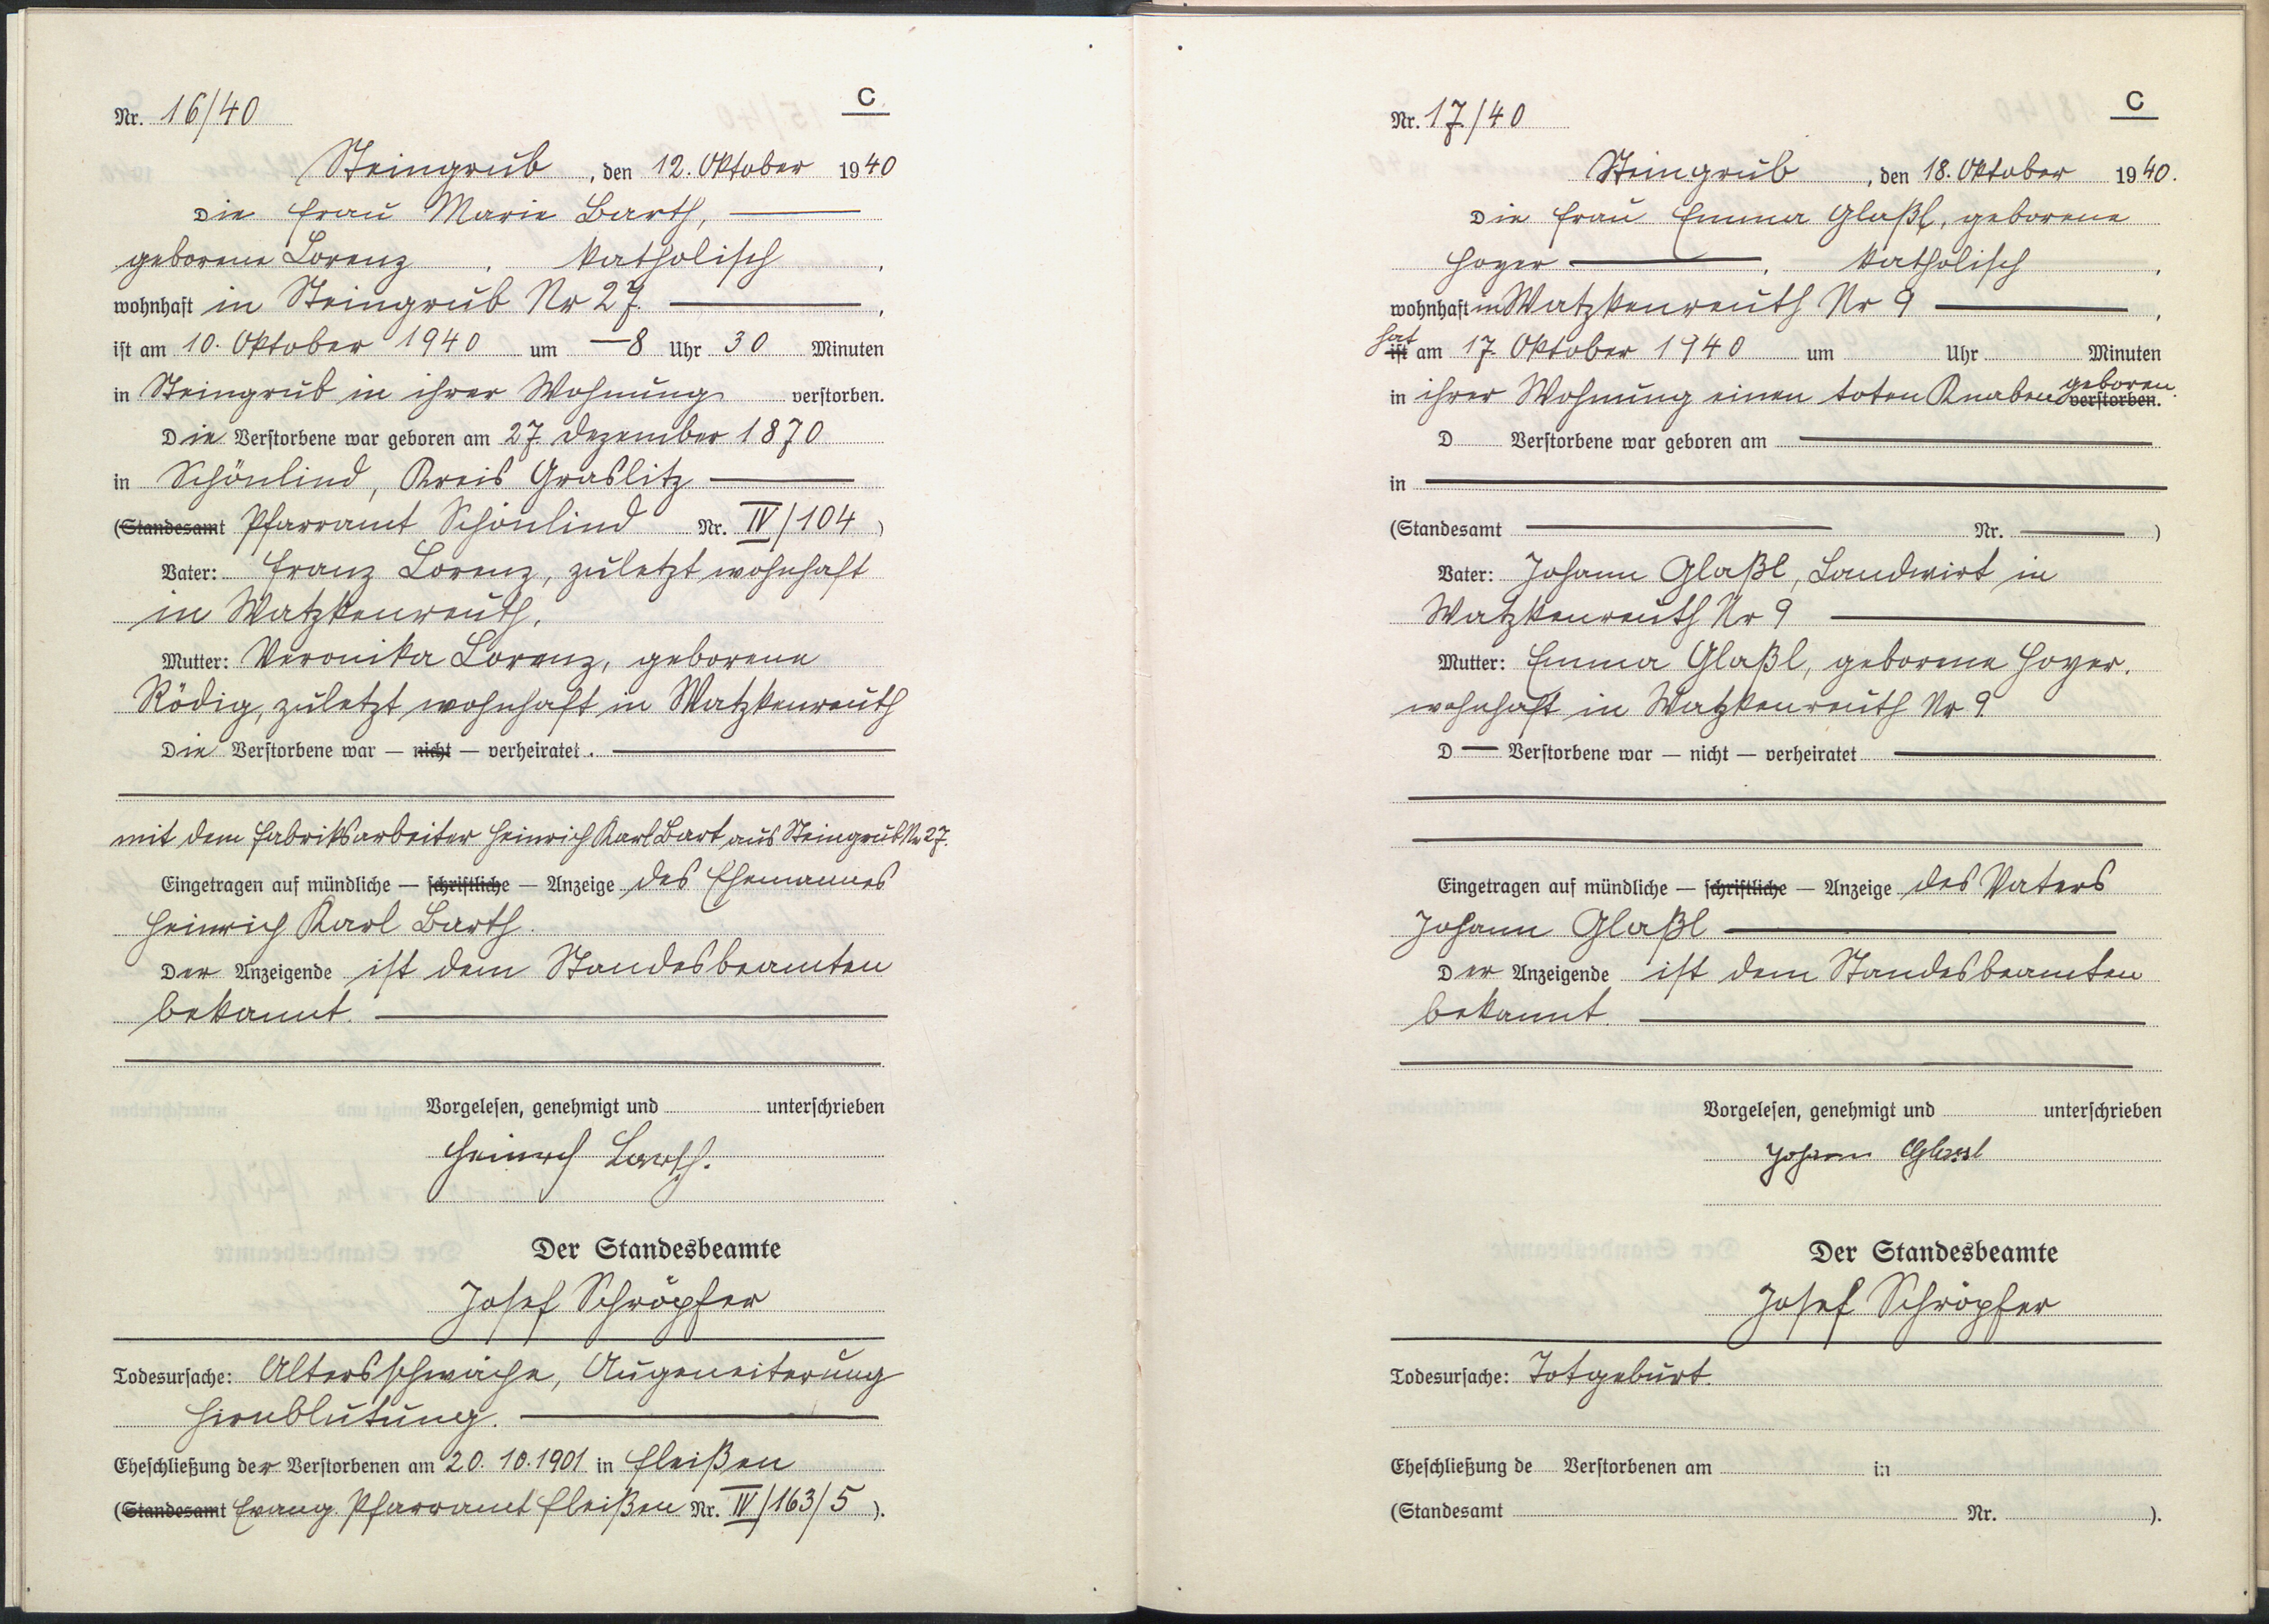 C
Nr. 16/40
Steingrub, den 12. Oktober 1940
Die Frau Marie Barth,
geborene Lorenz, katholisch,
wohnhaft in Steingrub Nr 27.,
ist am 10. Oktober 1940 um 8 Uhr 30 Minuten
in Steingrub in ihrer Wohnung verstorben.
Die Verstorbene war geboren am 27. Dezember 1870
in Schönlind, Kreis Graslitz
(Standesamt Pfarramt Schönlind Nr. IV/104)
Vater: Franz Lorenz, zuletzt wohnhaft
in Watzkenreuth.
Mutter: Veronika Lorenz, geborene
Rödig, zuletzt wohnhaft in Watzkenreuth
Die Verstorbene war — nicht — verheiratet.
mit dem Fabriksarbeiter Heinrich Karl Bart aus Steingrub Nr 27.
Eingetragen auf mündliche — schriftliche — Anzeige des Ehemannes
Heinrich Karl Barth.
Der Anzeigende ist dem Standesbeamten
bekannt.
Vorgelesen, genehmigt und unterschrieben
Heinrich Barth.
Der Standesbeamte
Josef Schröpfer
Todesursache: Altersschwäche, Augeneiterung
Hirnblutung.
Eheschließung der Verstorbenen am 20. 10. 1901 in Fleißen
(Standesamt Evang. Pfarramt Fleißen Nr. IV/163/5).
C
Nr. 17/40
Steingrub, den 18. Oktober 1940.
Die Frau Emma Glaßl, geborene
Hoyer, katholisch,
wohnhaft in Watzkenreuth Nr 9,
hat
ist am 17. Oktober 1940 um Uhr Minuten
geboren
in ihrer Wohnung einen toten Knaben verstorben.
D Verstorbene war geboren am
in
(Standesamt Nr. )
Vater: Johann Glaßl, Landwirt in
Watzkenreuth Nr 9
Mutter: Emma Glaßl, geborene Hoyer,
wohnhaft in Watzkenreuth Nr. 9
D Verstorbene war — nicht — verheiratet
Eingetragen auf mündliche — schriftliche — Anzeige des Vaters
Johann Glaßl
Der Anzeigende ist dem Standesbeamten
bekannt.
Vorgelesen, genehmigt und unterschrieben
Johann Glassl
Der Standesbeamte
Josef Schröpfer
Todesursache: Totgeburt.
Eheschließung de Verstorbenen am in
(Standesamt Nr. ).